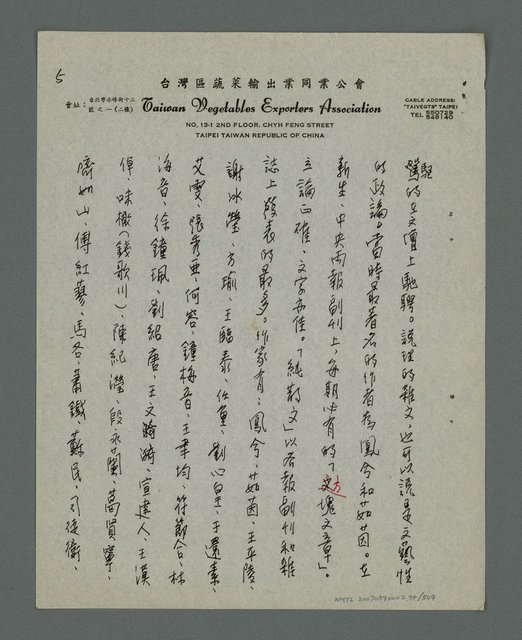 5
台灣區蔬菜輸出業同業公會
會址：台北市赤峰街十三號之一(二樓)
Taiwan Vegetables Exporters Association
NO. 13-1 2ND FLOOR. CHYH FENG STREET
TAIPEI TAIWAN REPUBLIC OF CHINA
CABLE ADDRESS:
"TAIVEGTS" TAIPEI
TEL
駕的在文壇上馳騁。說理的雜文，也可以說是文藝性
的政論，當時最著名的作者為鳳兮和茹茵。在
新生、中央兩報副刊上，每期必有的「方塊文章」。
立論正確、文字亦佳。「純散文」以各報副刊和雜
誌上發表的最多。作家有：鳳兮、茹茵、王平陵、
謝冰瑩、方瑜、王臨泰、任重、劉心皇、于還素、
艾雯、張秀亞、何容、鍾梅音、王聿均、符節合、林
海音、徐鐘珮、劉紹唐、王文漪、宣建人、王漢
倬、味橄（錢歌川）、陳紀瀅、段永蘭、葛賢寧、
齊如山、傅紅蓼、馬各、蕭鐵、蘇民、引徒衡、
NMTL 20070590002 94/509